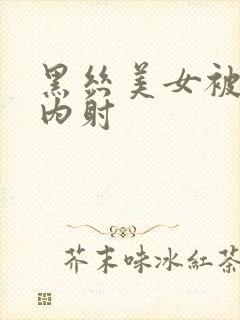 黑丝美女被
内射
芥末味冰紅茶